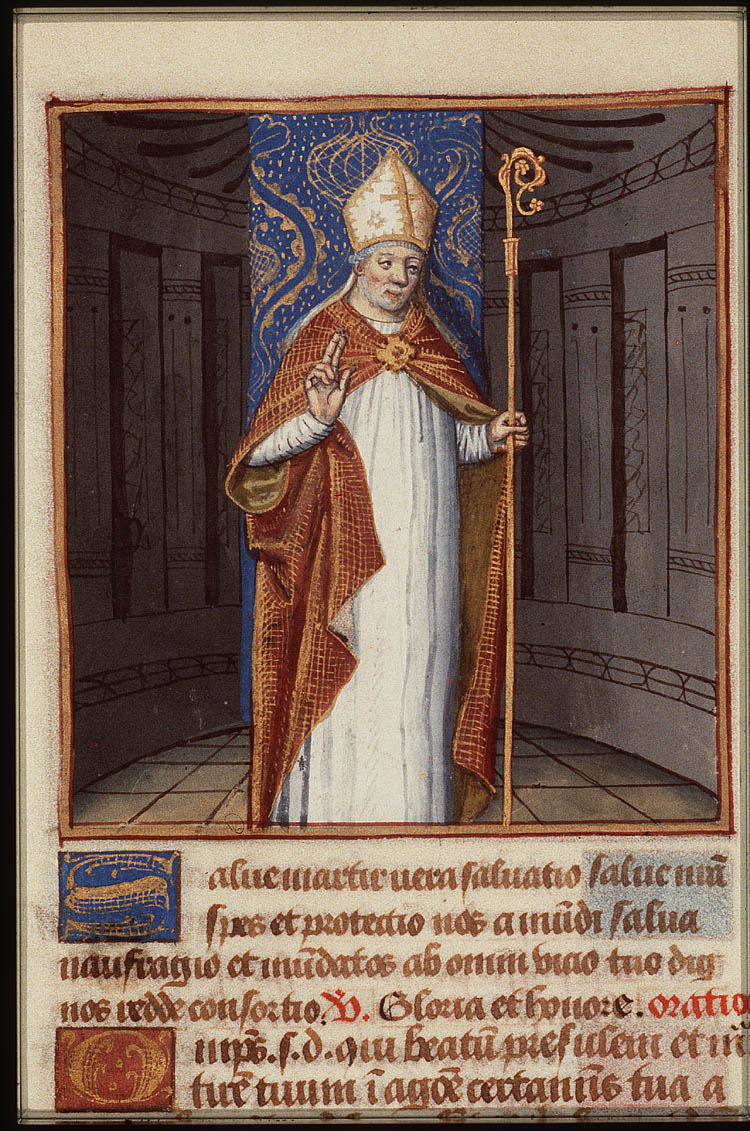 Salue martir uera saluatio salue mūdi
spes et protectio nos a mūdi salua
naufragio et mūdatos ab omni vicio tuo dig
nos redde consortio. V. Gloria et honore. oratio
Omps. s. d. qui beatū presulem et
tirē tuum ī agōe certaminis tua a